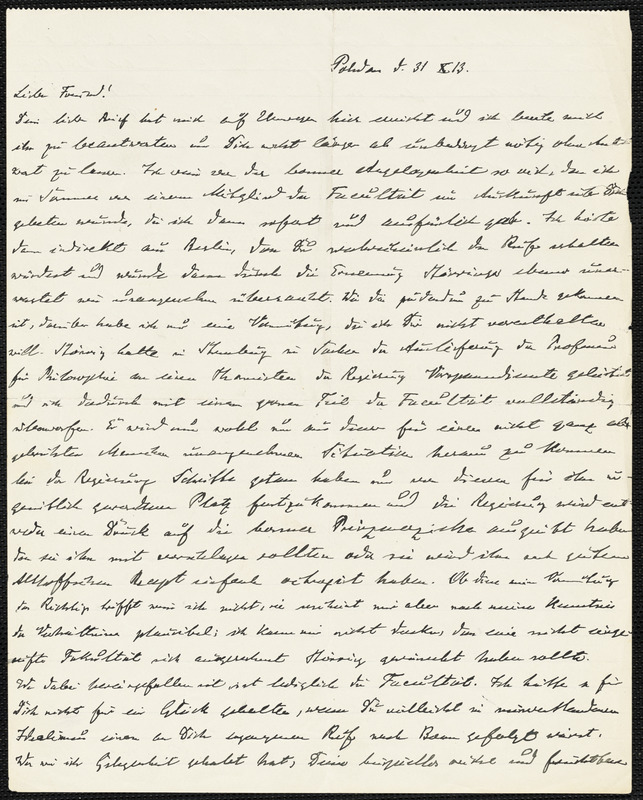 Potsdam d. 31 X 13.
Lieber Freund!
Dein lieber Brief hat mich auf Umwegen hier erreicht und ich beeile mich
ihn zu beantworten um Dich nicht länger als unbedingt nötig ohne Ant-
wort zu lassen. Ich weiss von der bonner Angelegenheit so viel, dass ich
im Sommer von einem Mitglied der Facultät um Auskunft über Dich
gebeten wurde, die ich dann sofort und ausführlich gab. Ich hörte
dann indirekt aus Berlin, dass Du wahrscheinlich den Ruf erhalten
würdest und wurde dann durch die Ernennung Störrings ebenso uner-
wartet wie unangenehm überrascht. Wie das zu Stande gekommen
ist, darüber habe ich nur eine Vermutung, die ich Dir nicht vorenthalten
will. Störring hatte in Strassburg in Sachen der Auslieferung der Professur
für Philosophie an einen Thomisten der Regierung Vorspanndienste geleistet
und sich dadurch mit einem grossen Teil der Facultät vollständig
überworfen. Er wird nun wohl um aus dieser für einen nicht ganz
Menschen unangenehmen Situation heraus zu kommen
bei der Regierung Schritte getan haben um von diesem für ihn un-
gemütlich gewordenen Platz fortzukommen und die Regierung wird ent-
weder einen Druck auf die bonner ausgeübt haben
dass sie ihn mit vorschlagen sollten oder sie wird ihn nach gutem
Althoffschen Rezept einfach octroyiert haben. Ob diese meine Vermutung
das Richtige trifft weiss ich nicht, sie erscheint mir aber nach meiner Kenntnis
der Verhältnisse plausibel; ich kann mir nicht denken, dass eine nicht
Fakultät sich ausgerechnet Störring gewünscht haben sollte.
Wer dabei hereingefallen ist, ist lediglich die Facultät. Ich hätte es für
Dich nicht für ein Glück gehalten, wenn Du vielleicht in
Idealismus einem an Dich ergangenen Ruf nach Bonn gefolgt wärst.
Wer wie ich Gelegenheit gehabt hat, Deine und fruchtbare